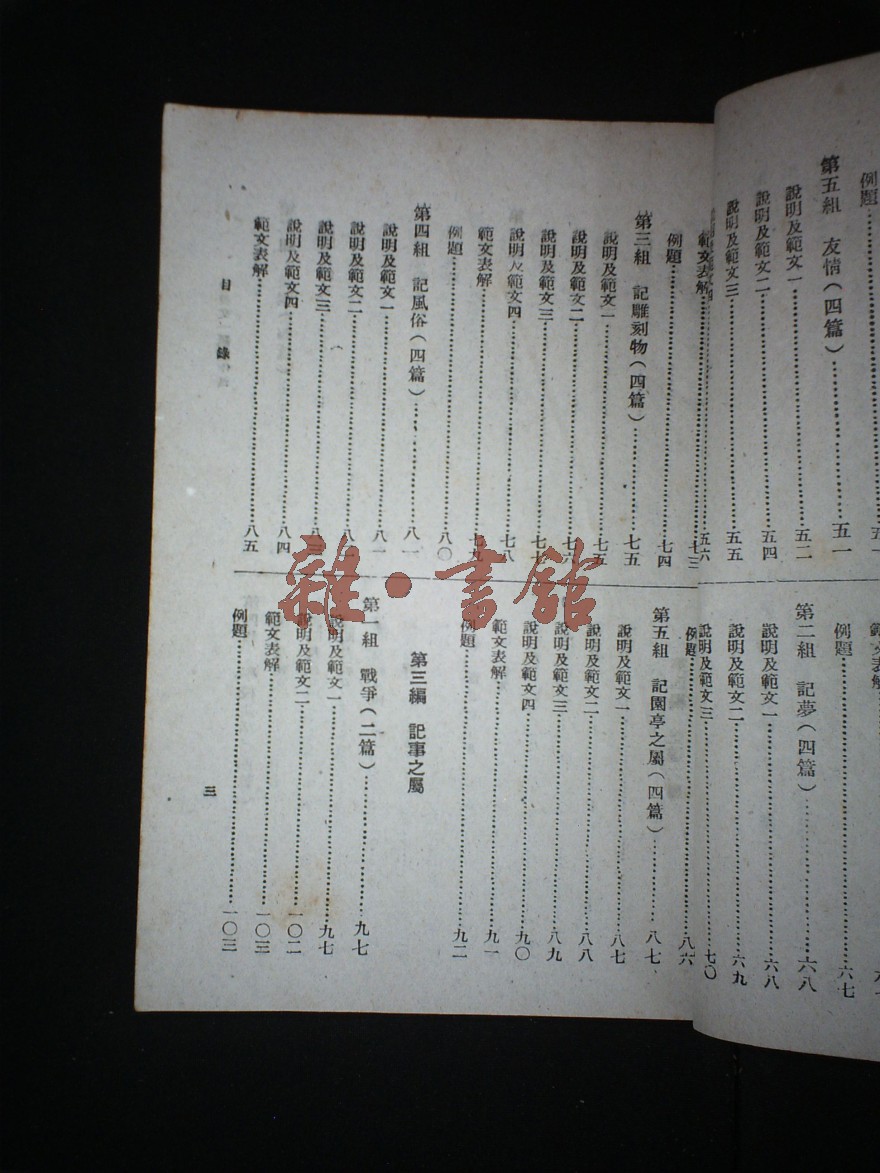 例題……五一
第五組　友情（四篇）……五一
說明及範文一……五二
說明及範文二……五四
說明及範文三……五五
五六
範文表解
例題……六七
第二組　記夢（四篇）……六八
說明及範文一……六八
說明及範文二……六九
說明及範文三……七〇
範文表解……七三
例題……七四
第三組　記雕刻物（四篇）……七五
說明及範文一……七五
說明及範文二……七六
說明及範文三……七七
說明及範文四……七八
範文表解……七九
例題……八〇
第四組　記風俗（四篇）……八一
說明及範文一……八一
說明及範文二……八二
說明及範文三……八三
說明及範文四……八四
範文表解……八五
例題……八六
第五組　記園亭之屬（四篇）……八七
說明及範文一……八七
說明及範文二……八八
說明及範文三……八九
說明及範文四……九〇
範文表解……九一
例題……九二
第三編　記事之屬
第一組　戰爭（二篇）……九七
說明及範文一……九七
說明及範文二……一〇二
範文表解……一〇三
例題……一〇三
目錄
三
雜·書館